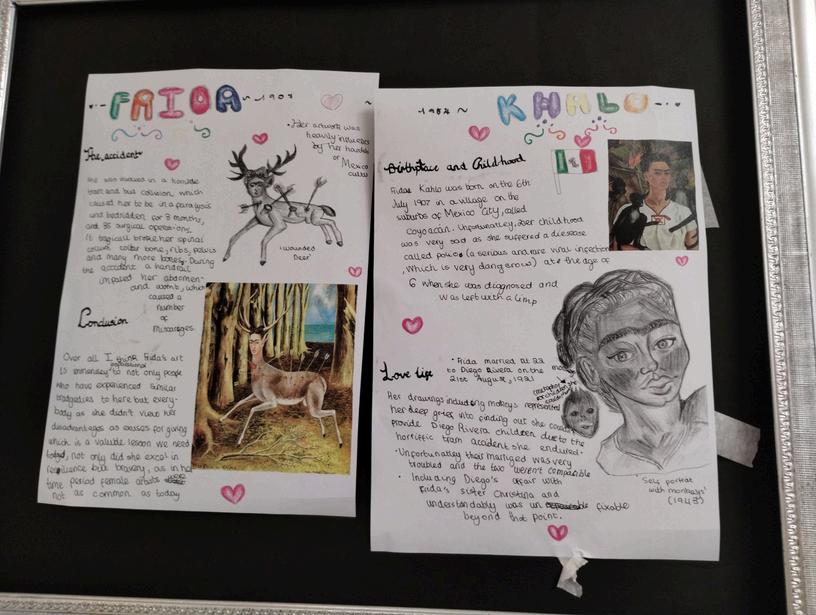 FRIDA ~ 1907
The accident
She was involved in a horrible
tram and bus collision which
caused her to be in a paralysis
and bedridden for 3 months,
and 35 surgical operations.
It tragicall broke her spinal
collum collar bone, ribs, pelvis
and many more bones. During
the accident a handrail
impaled her abdomen
and womb, which
caused a
number
of
Miscarages.
• Her artwork was
heavily influenced
by her
or Mexico
culture
'wounded
Deer'
Conclusion
Over all I think Frida's art
inspirational
is immensley to not only people
who have experienced similar
tradgedies to here but every-
body as she didn't view her
disadvantages as excuses for giving
which is a valuble lesson we need
today, not only did she excel in
resilience but bravery, as in her
time period female artists were
not as common as today
~ 1954 ~ KHALO
Birthplace and Childhood
Fridas Kahlo was born on the 6th
July 1907 in a village on the
suburbs of Mexico City, called
Coyoacán. Unfortunatley, her childhood
was very sad as she suffered a diesease
called polio (a serious and rare viral infection
, which is very dangerous) at the age of
6 when she was diagnosed and
was left with a limp
Love life
• Frida married at 22
to Diego Rivera on the
21st August, 1929
Her drawings including monkeys represented
her deep grief into finding out she couldn't
provide Diego Rivera children due to the
horriffic tram accident she endured.
• Unfortunatley their marriged was very
troubled and the two weren't compatible
• Including Diego's affair with
Frida's sister Christina and
understandably was un fixable
beyond that point.
(metaphor
for children she
couldn't
Self portrat
with monkeys'
(1943)